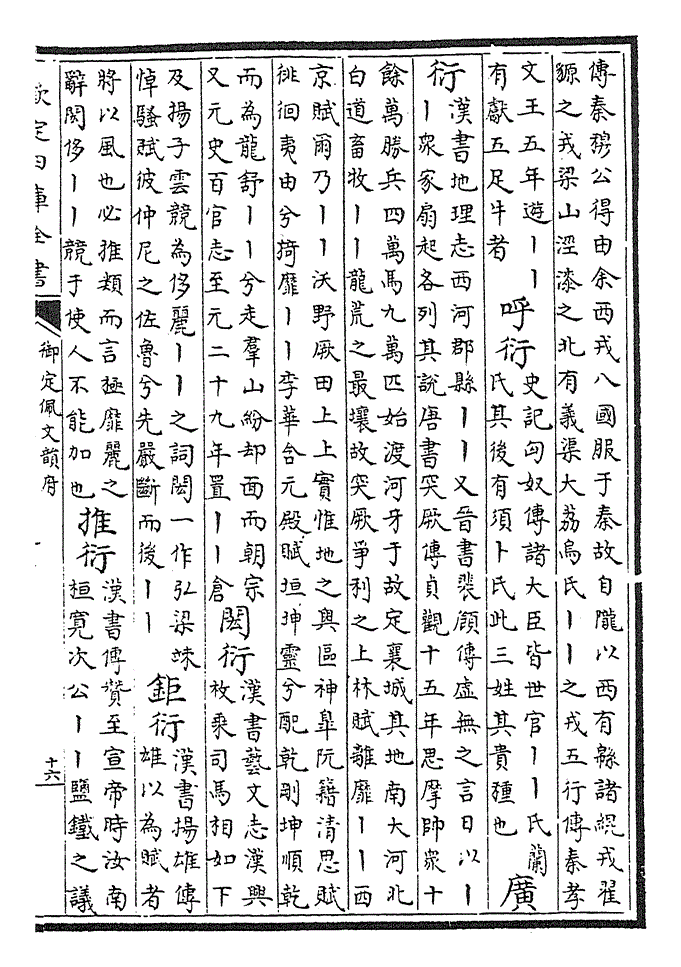 傳秦穆公得由余西戎八國服于秦故自隴以西有緜諸緄戎翟
豲之戎梁山涇漆之北有義渠大荔烏氏丨丨之戎五行傳秦孝
文王五年遊丨丨
有獻五足牛者
呼衍
史記匈奴傳諸大臣皆世官丨丨氏蘭
氏其後有須卜氏此三姓其貴種也
廣
衍
漢書地理志西河郡縣丨丨又晉書裴頠傳虛無之言日以丨
丨衆家扇起各列其説唐書突厥傳貞觀十五年思摩帥衆十
餘萬勝兵四萬馬九萬匹始渡河牙于故定襄城其地南大河北
白道畜牧丨丨龍荒之最壤故突厥爭利之上林賦離靡丨丨西
京賦爾乃丨丨沃野厥田上上實惟地之輿區神臯阮籍清思賦
徘徊夷由兮猗靡丨丨李華含元殿賦垣坤靈兮配乾剛坤順乾
而為龍舒丨丨兮走羣山紛却面而朝宗
又元史百官志至元二十九年置丨丨倉
閎衍
漢書藝文志漢興
枚乘司馬相如下
及揚子雲競為侈麗丨丨之詞閎一作弘梁竦
悼騷賦彼仲尼之佐魯兮先嚴斷而後丨丨
鉅衍
漢書揚雄傳
雄以為賦者
將以風也必推類而言極靡麗之
辭閎侈丨丨競于使人不能加也
推衍
漢書傳贊至宣帝時汝南
桓寬次公丨丨鹽鐵之議
欽定四庫全書
御定佩文韻府
十六